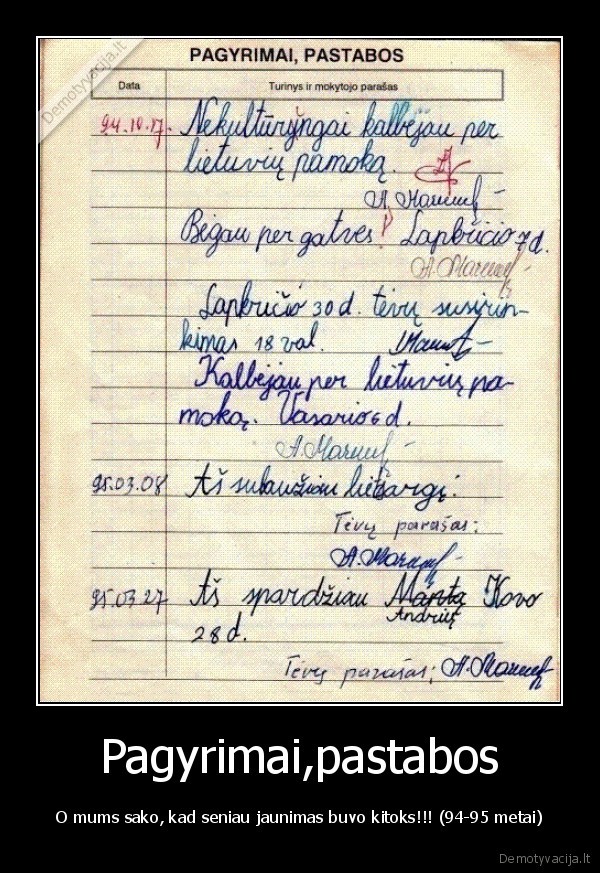 Demotyvacija.lt
PAGYRIMAI, PASTABOS
Data Turinys ir mokytojo parašas
94.10.17. Nekultūryngai kalbėjau per
lietuvių pamoką.
Bėgau per gatves! Lapkričio 7 d.
Lapkričio 30 d. tėvų susirin-
kimas 18 val.
Kalbėjau per lietuvių pa-
moką. Vasario 6 d.
95.03.08 Aš sulaužiau
Tėvų parašas:
95.03.27 Aš spardžiau Mantą Kovo
Andrių
28 d.
Tėvų parašas:
Pagyrimai,pastabos
O mums sako, kad seniau jaunimas buvo kitoks!!! (94-95 metai)
Demotyvacija.lt